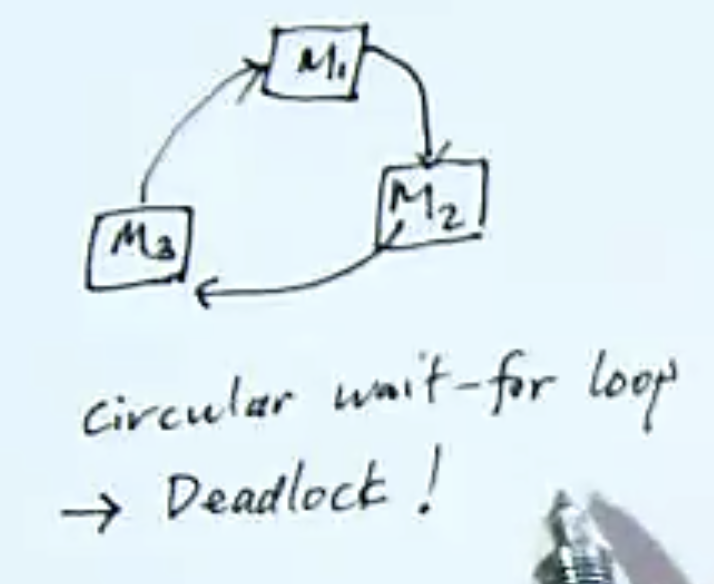 M1
M2
M3
circular wait-for loop
→ Deadlock!